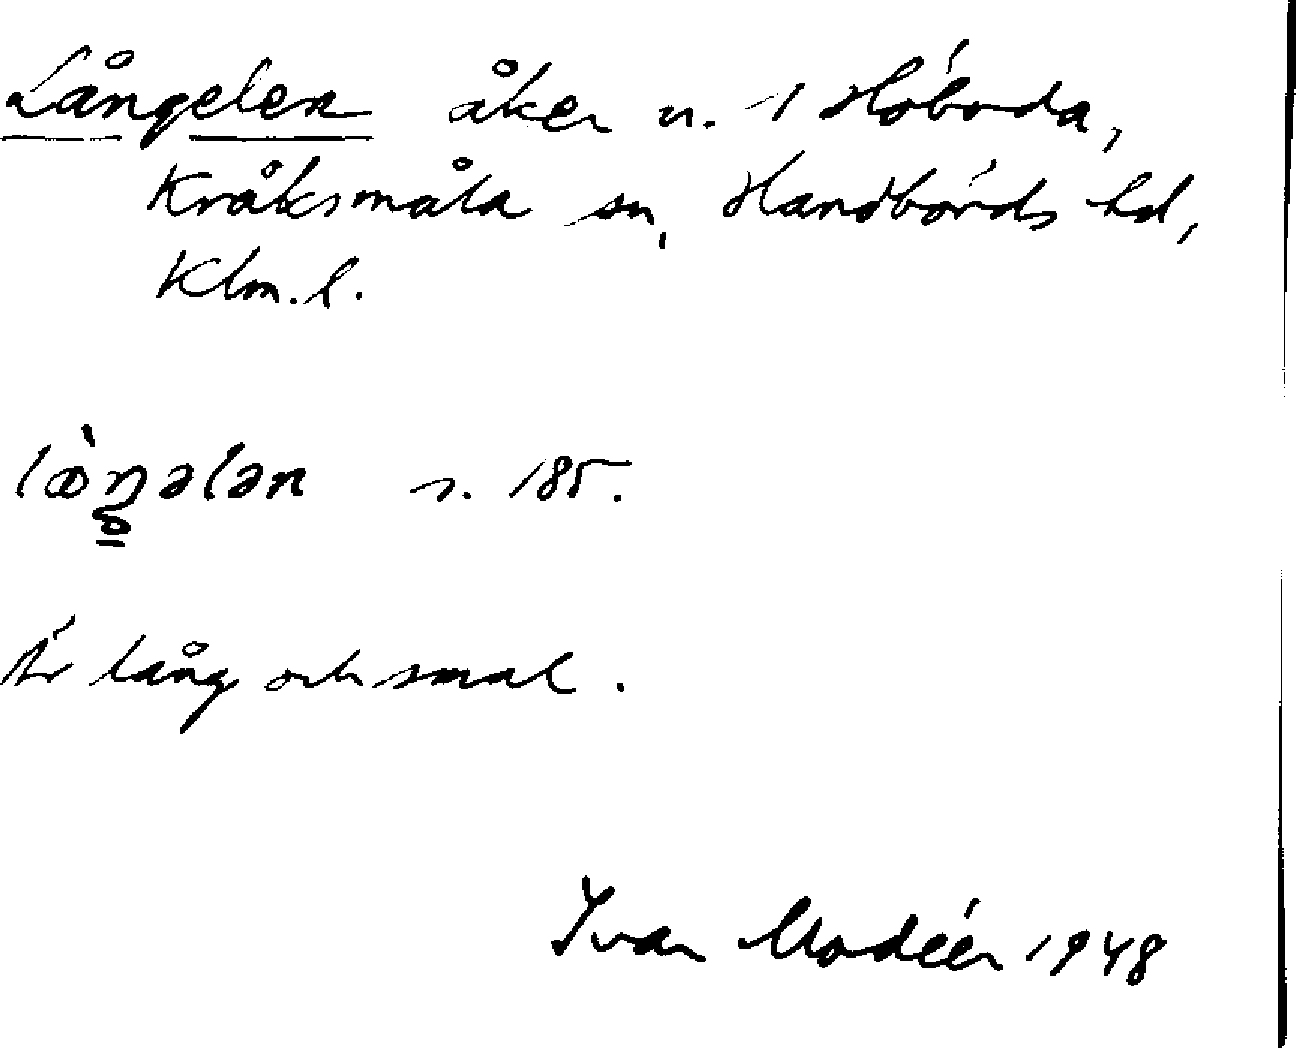 Långelen åker n. 1 Höboda,
Kråksmåla sn, Handbörds hd,
Klm.l.
s. 185.
Är lång och smal.
Ivar Modéer 1948